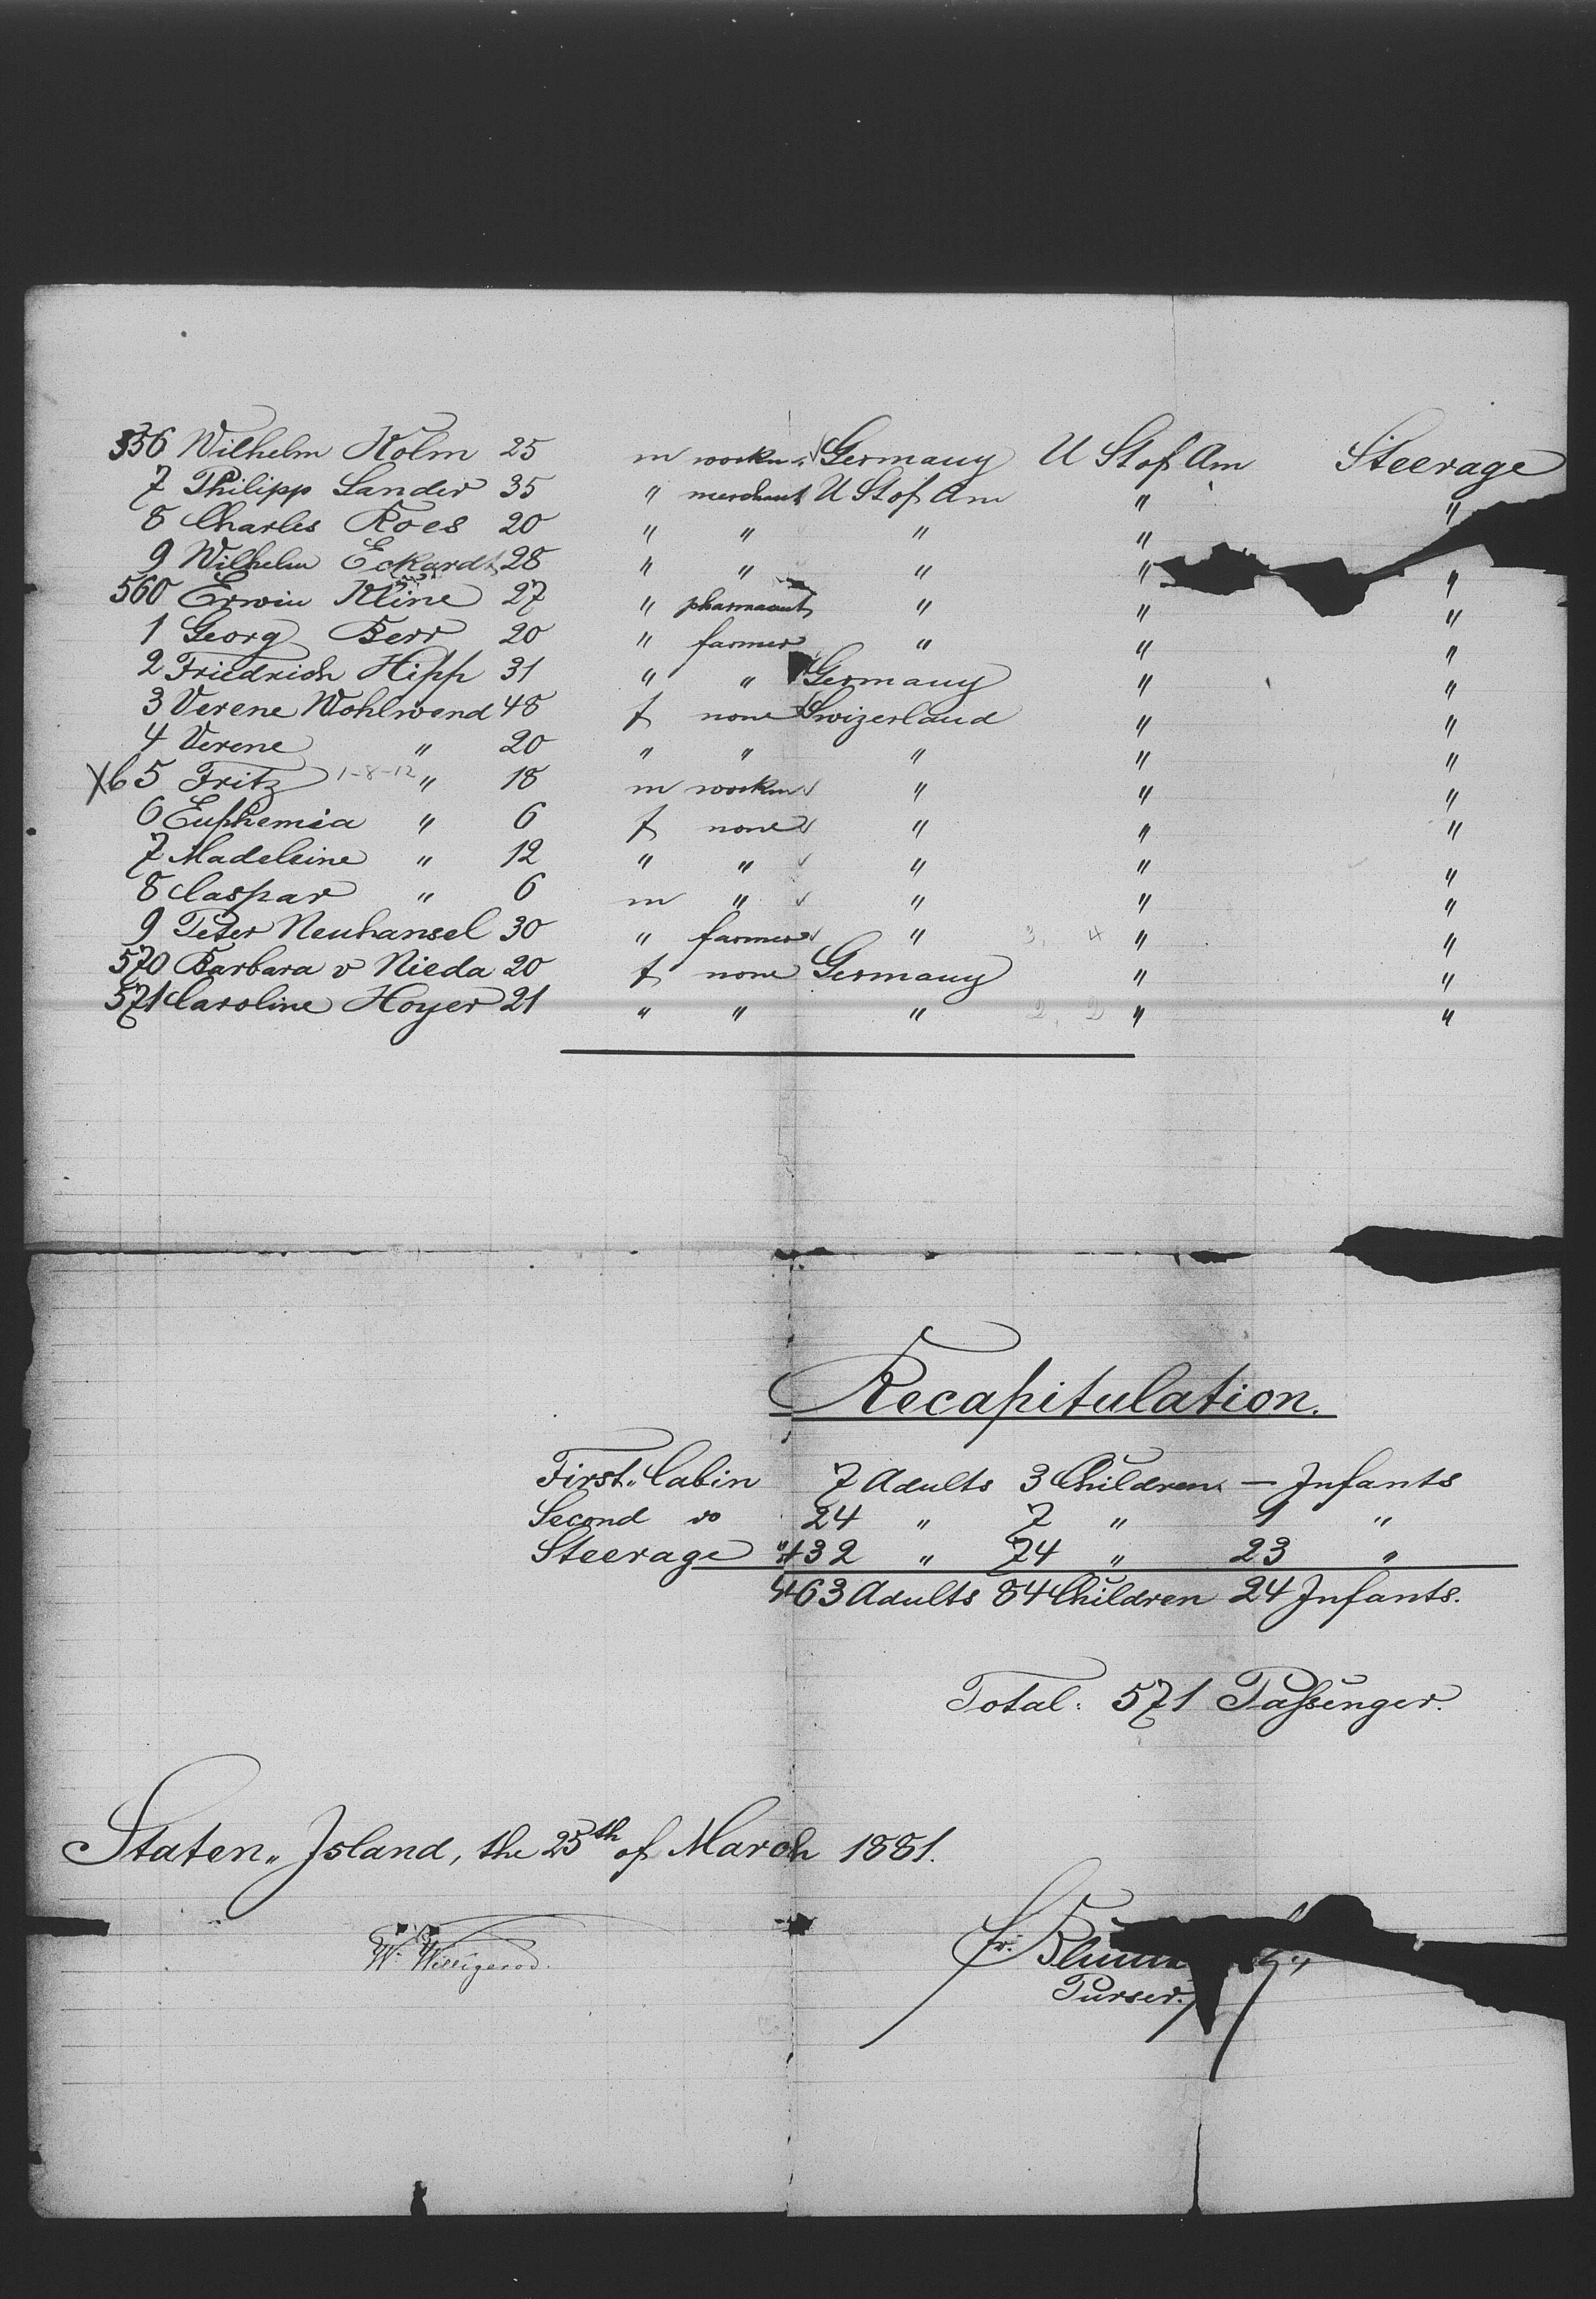 556 Wilhelm Kolm 25 m workm. Germany U St of Am Steerage
7 Philipp Sander 35 " merchant U St of Am " "
8 Charles Roes 20 " " " "
9 Wilhelm Eckardt 28 " " " " "
560 Erwin Kline 27 " pharmaceut " " "
1 Georg Berr 20 " farmer " " "
2 Friedrich Hipp 31 " " Germany " "
3 Verene Wohlwend 48 f none Swizerland " "
4 Verene " 20 " " " " "
X6 5 Fritz 1-8-12 " 18 m workm " " "
6 Euphemia " 6 f none " " "
7 Madeleine " 12 " " " " "
8 Caspar " 6 m " " " "
9 Peter Neuhansel 30 " farmer " 3, 4 " "
570 Barbara v Nieda 20 f none Germany " "
571 Caroline Hoyer 21 " " " 2, 2 " "
Recapitulation.
First „ Cabin 7 Adults 3 Children — Infants
Second do 24 " 7 " 1 "
Steerage 432 " 74 " 23 "
463 Adults 84 Children 24 Infants.
Total: 571 Passenger.
Staten „ Island, the 25th of March 1881.
W. Willigerod.
Fr.
Purser.